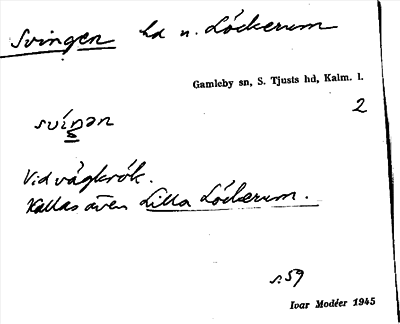 Svingen hd n. Lockerum
Gamleby sn, S. Tjusts hd, Kalm. l.
2
svíŋən
Vid vägkrök.
Kallas även Lilla Lockerum.
s. 59
Ivar Modéer 1945